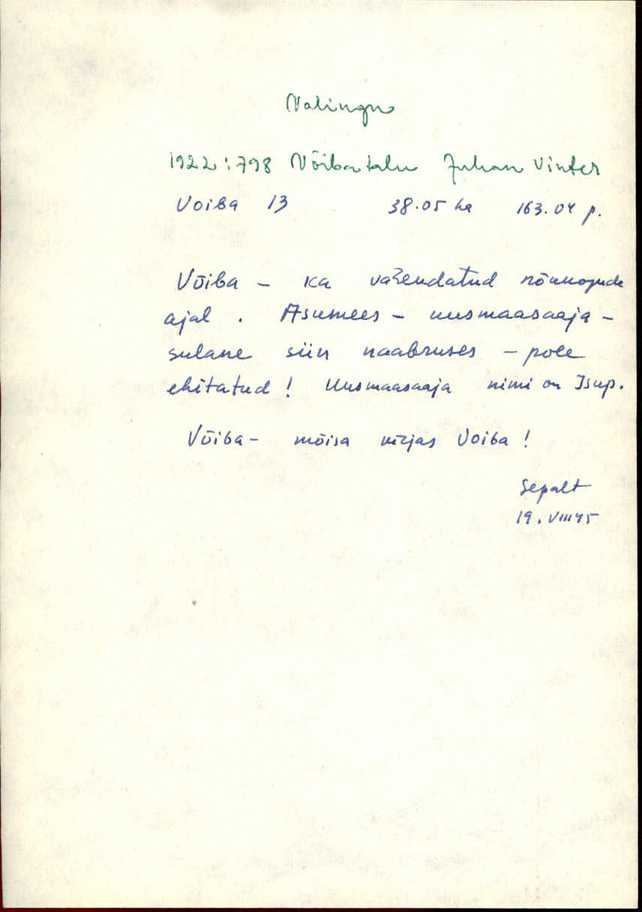 Valingu
1922: 798 Võiba talu Juhan Vinter
Voiba 13 38.05 ha 163.04 p.
Võiba – ka vähendatud nõukogude
ajal. Asumees – uusmaasaaja –
sulane siin naabruses – pole
ehitatud! Uusmaasaaja nimi on Isup.
Võiba – mõisa kirjas Voiba!
Sepalt
19. VIII 45